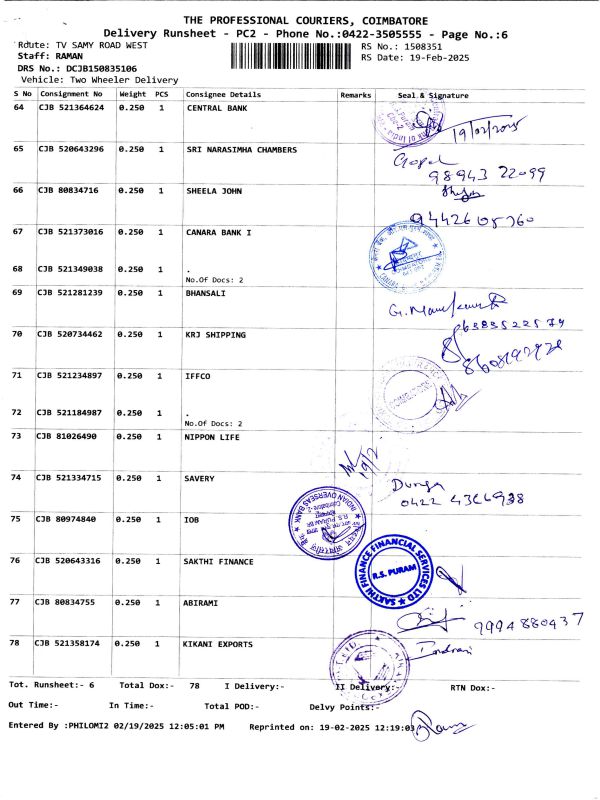 THE PROFESSIONAL COURIERS, COIMBATORE
Delivery Runsheet - PC2 - Phone No.:0422-3505555 - Page No.:6
Route: TV SAMY ROAD WEST RS No.: 1508351
Staff: RAMAN RS Date: 19-Feb-2025
DRS No.: DCJB150835106
Vehicle: Two Wheeler Delivery
S No Consignment No Weight PCS Consignee Details Remarks Seal & Signature
64 CJB 521364624 0.250 1 CENTRAL BANK
19/02/2025
65 CJB 520643296 0.250 1 SRI NARASIMHA CHAMBERS Gopal
98943 22099
66 CJB 80834716 0.250 1 SHEELA JOHN
9442605760
67 CJB 521373016 0.250 1 CANARA BANK I
68 CJB 521349038 0.250 1 .
No.Of Docs: 2
69 CJB 521281239 0.250 1 BHANSALI
70 CJB 520734462 0.250 1 KRJ SHIPPING
71 CJB 521234897 0.250 1 IFFCO
72 CJB 521184987 0.250 1 .
No.Of Docs: 2
73 CJB 81026490 0.250 1 NIPPON LIFE
19/2
74 CJB 521334715 0.250 1 SAVERY Durga
0422 4366938
75 CJB 80974840 0.250 1 IOB
INDIAN OVERSEAS BANK
76 CJB 520643316 0.250 1 SAKTHI FINANCE
SAKTHI FINANCE FINANCIAL SERVICES LTD
R.S. PURAM
77 CJB 80834755 0.250 1 ABIRAMI
9994880437
78 CJB 521358174 0.250 1 KIKANI EXPORTS Indrani
Tot. Runsheet:- 6 Total Dox:- 78 I Delivery:- II Delivery:- RTN Dox:-
Out Time:- In Time:- Total POD:- Delvy Points:-
Entered By :PHILOMI2 02/19/2025 12:05:01 PM Reprinted on: 19-02-2025 12:19:03